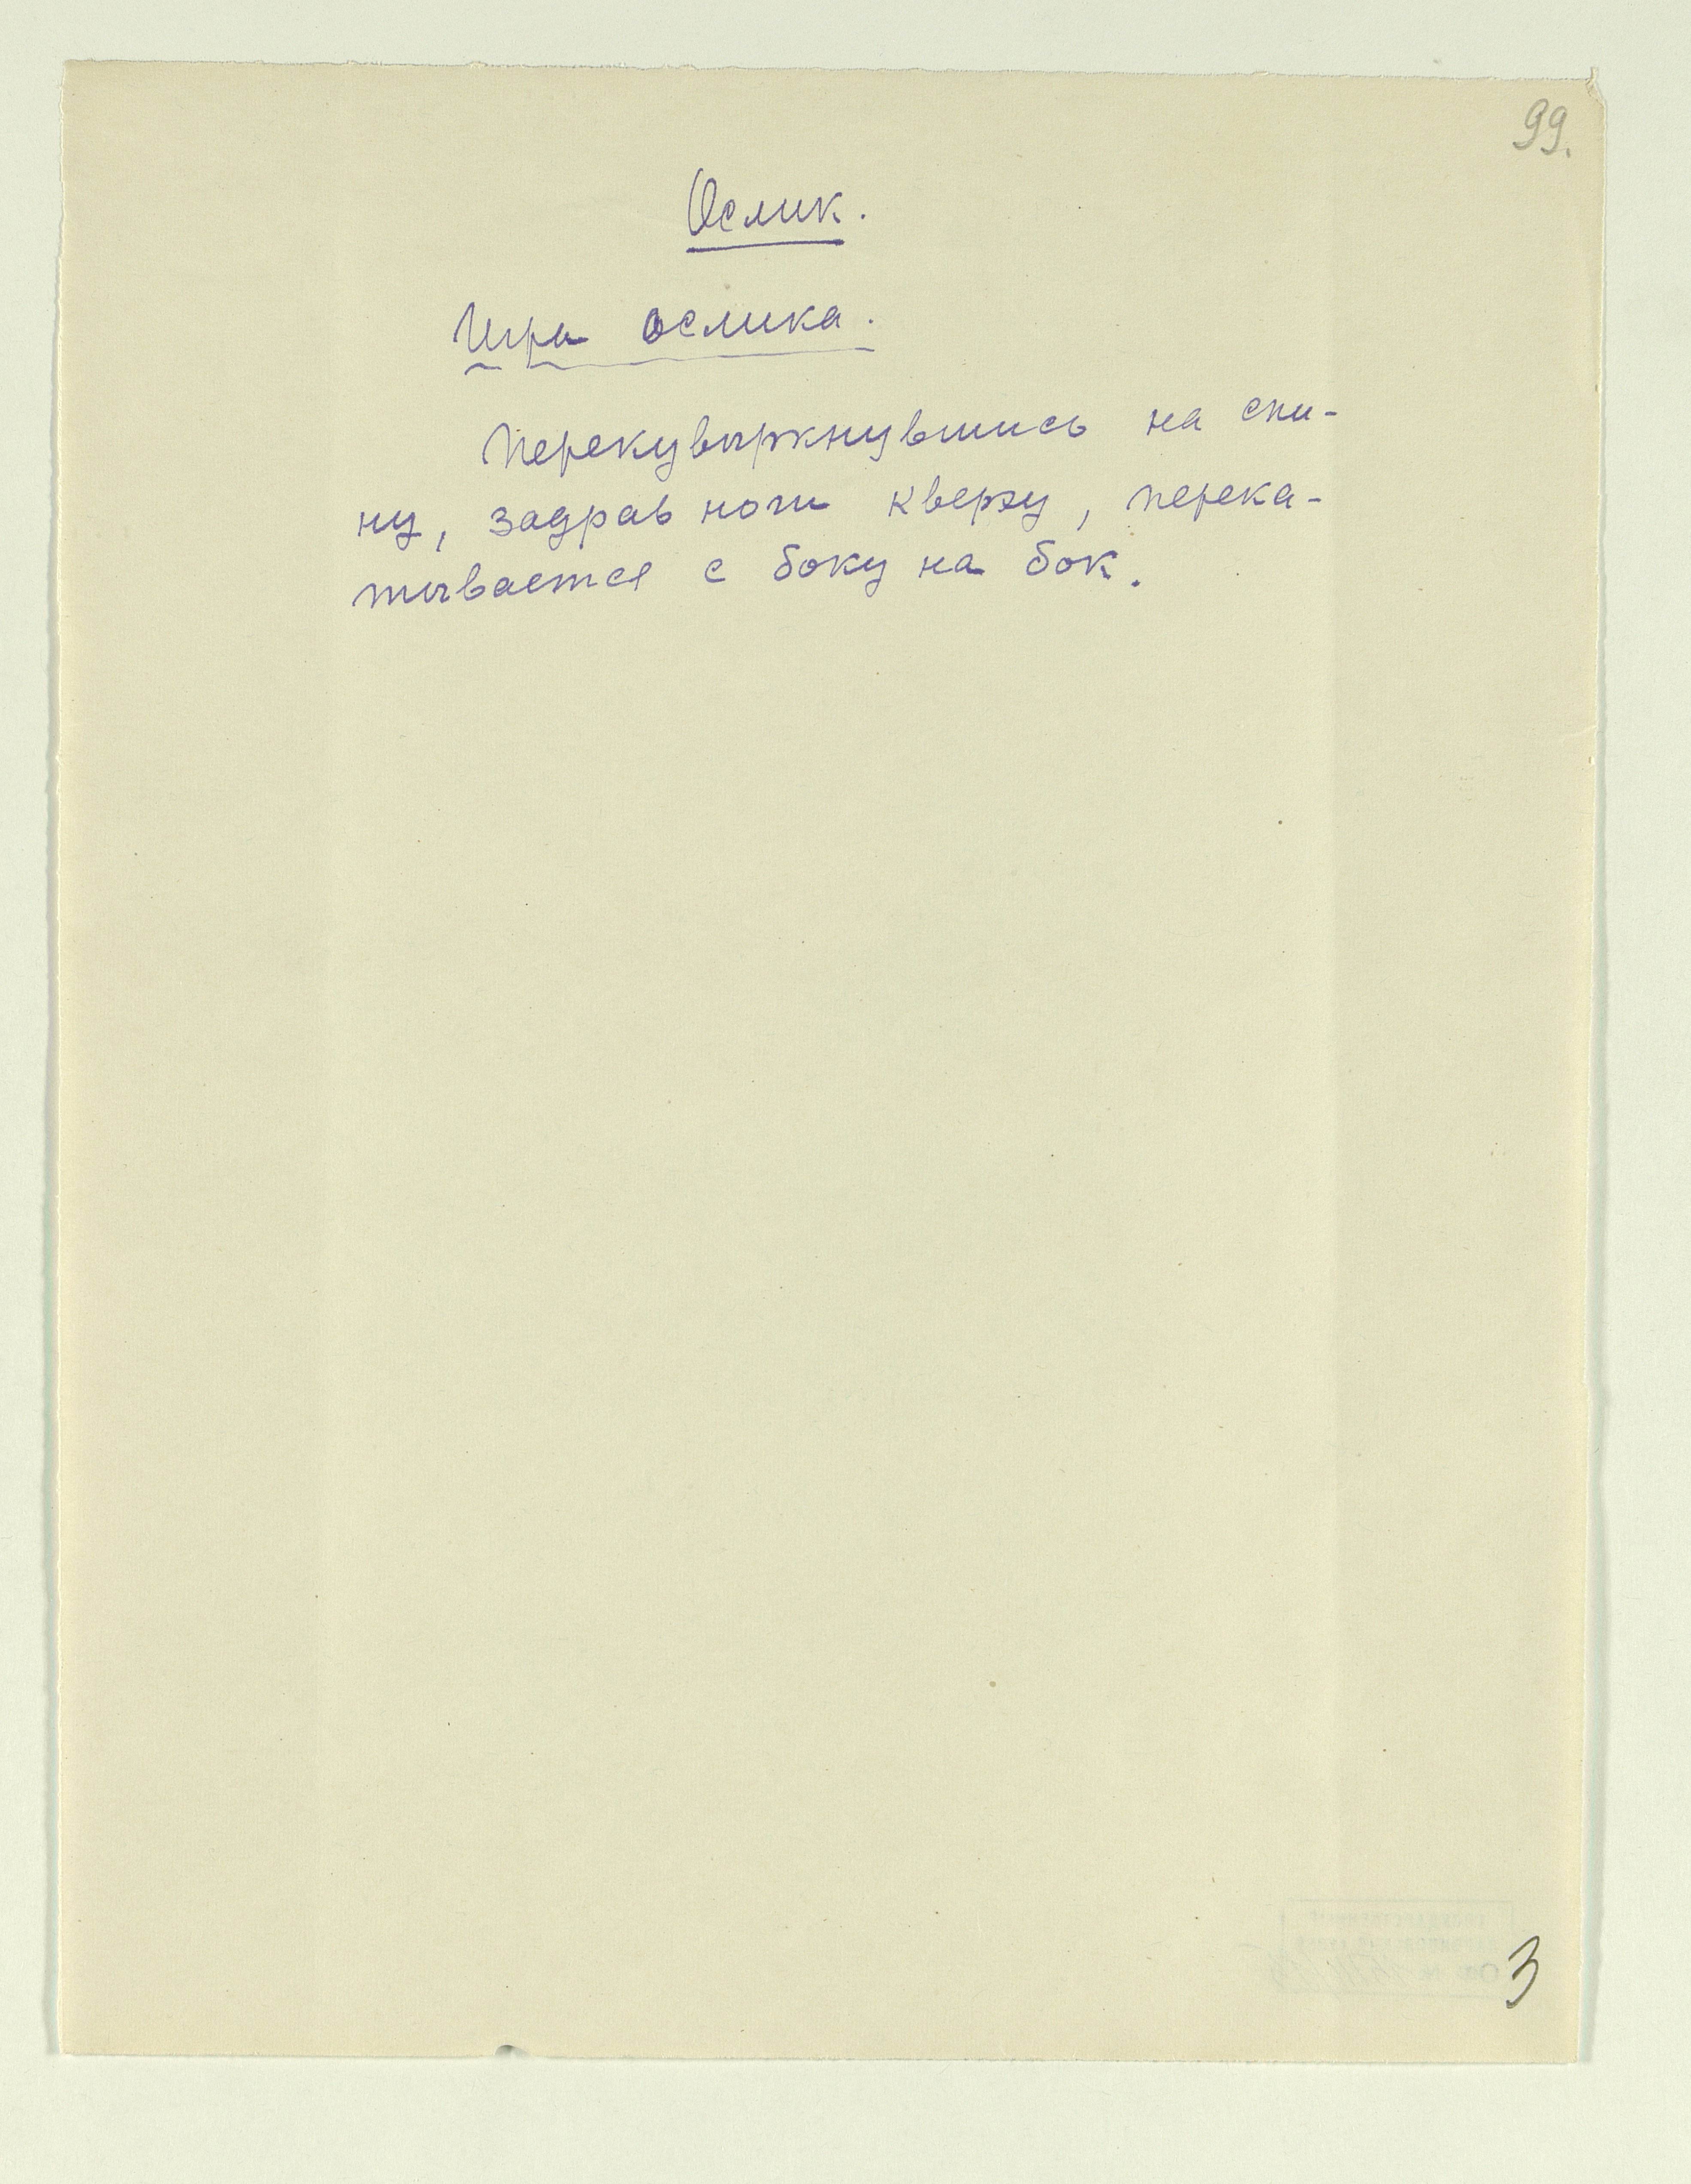 99.
Ослик.
Игры ослика.
Перекувыркнувшись на спи-
ну, задрав ноги кверху, перека-
тывается с боку на бок.
3